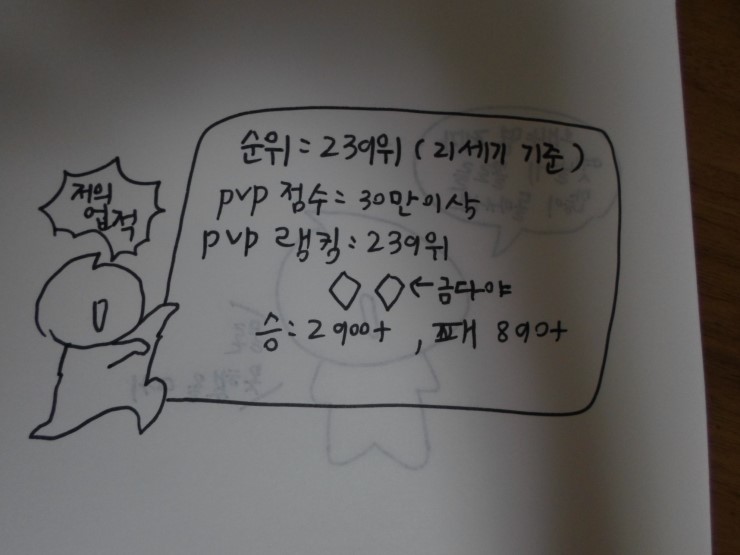 저의
업적
순위 = 239위 (21세기 기준)
pvp 점수 = 30만이상
pvp 랭킹 : 239위
←금다야
승 : 2900+ , 패 890+